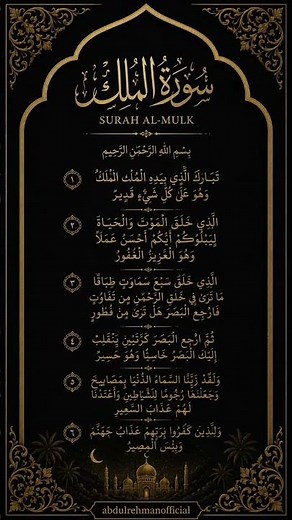 سُورَةُ المُلك
SURAH AL-MULK
بِسْمِ اللهِ الرَّحْمٰنِ الرَّحِيمِ
١ تَبَارَكَ الَّذِي بِيَدِهِ الْمُلْكُ الْمُلْكُ
وَهُوَ عَلَىٰ كُلِّ شَيْءٍ قَدِيرٌ
٢ الَّذِي خَلَقَ الْمَوْتَ وَالْحَيَاةَ
لِيَبْلُوَكُمْ أَيُّكُمْ أَحْسَنُ عَمَلًا
وَهُوَ الْعَزِيزُ الْغَفُورُ
٣ الَّذِي خَلَقَ سَبْعَ سَمَاوَتٍ طِبَاقًا
مَا تَرَىٰ فِي خَلْقِ الرَّحْمٰنِ مِن تَفَاوُتٍ
فَارْجِعِ الْبَصَرَ هَلْ تَرَىٰ مِنْ فُطُورٍ
٤ ثُمَّ ارْجِعِ الْبَصَرَ كَرَّتَيْنِ يَنْقَلِبْ
إِلَيْكَ الْبَصَرُ خَاسِئًا وَهُوَ حَسِيرٌ
٥ وَلَقَدْ زَيَّنَّا السَّمَاءَ الدُّنْيَا بِمَصَابِيحَ
وَجَعَلْنَاهَا رُجُومًا لِلشَّيَاطِينِ وَأَعْتَدْنَا
لَهُمْ عَذَابَ السَّعِيرِ
٦ وَلِلَّذِينَ كَفَرُوا بِرَبِّهِمْ عَذَابُ جَهَنَّمَ
وَبِئْسَ الْمَصِيرُ
abdulrehmanofficial